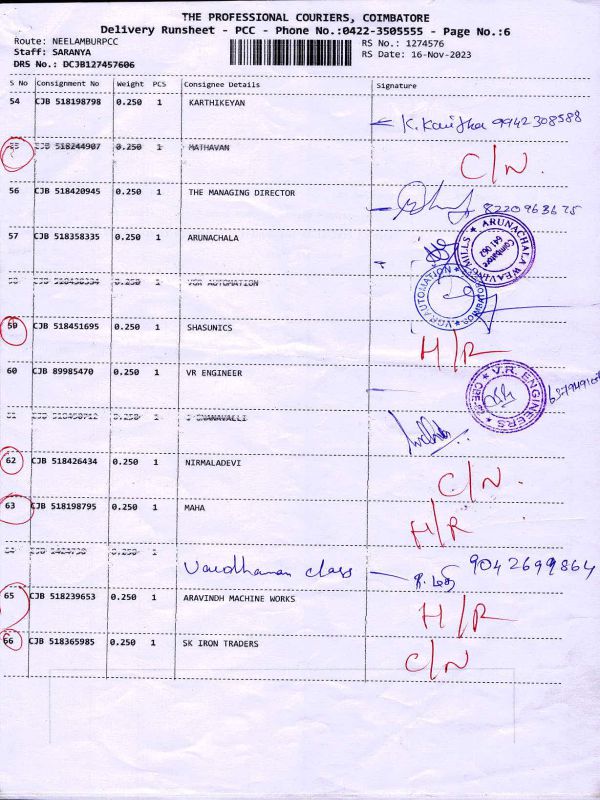 THE PROFESSIONAL COURIERS, COIMBATORE
Delivery Runsheet - PCC - Phone No.:0422-3505555 - Page No.:6
Route: NEELAMBURPCC
RS No.: 1274576
Staff: SARANYA
RS Date: 16-Nov-2023
DRS No.: DCJB127457606
S No Consignment No Weight PCS Consignee Details Signature
54 CJB 518198798 0.250 1 KARTHIKEYAN
9942308588
55 CJB 518244907 0.250 1 MATHAVAN
C/N.
56 CJB 518420945 0.250 1 THE MANAGING DIRECTOR
57 CJB 518358335 0.250 1 ARUNACHALA
ARUNACHALA WEAVING MILLS
Coimbatore
641 062
0.250 1 VGR AUTOMATION
VGR AUTOMATION
59 CJB 518451695 0.250 1 SHASUNICS
H/R
60 CJB 89985470 0.250 1 VR ENGINEER
V.R. ENGINEERS
0.250 1
62 CJB 518426434 0.250 1 NIRMALADEVI
C/N.
63 CJB 518198795 0.250 1 MAHA
H/R
0.250 1
Vardhaman class
9042699864
65 CJB 518239653 0.250 1 ARAVINDH MACHINE WORKS
H/R
66 CJB 518365985 0.250 1 SK IRON TRADERS
C/N